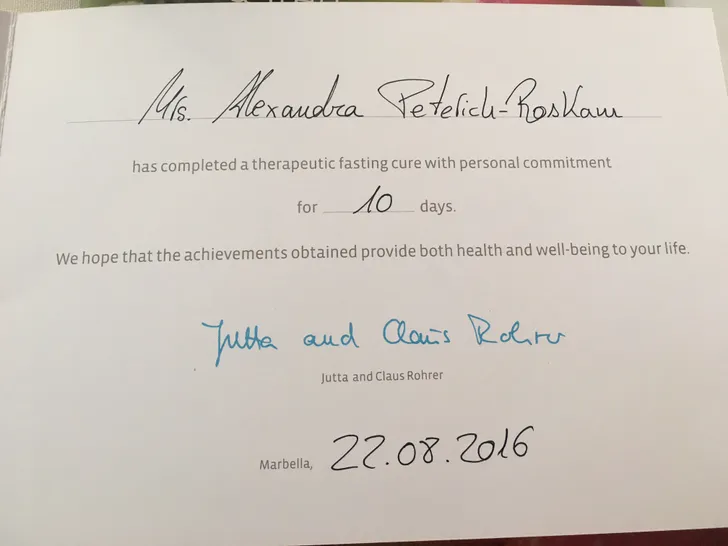 Mrs. Alexandra Peterich-Roskam
has completed a therapeutic fasting cure with personal commitment
for 10 days.
We hope that the achievements obtained provide both health and well-being to your life.
Jutta and Claus Rohrer
Jutta and Claus Rohrer
Marbella, 22.08.2016